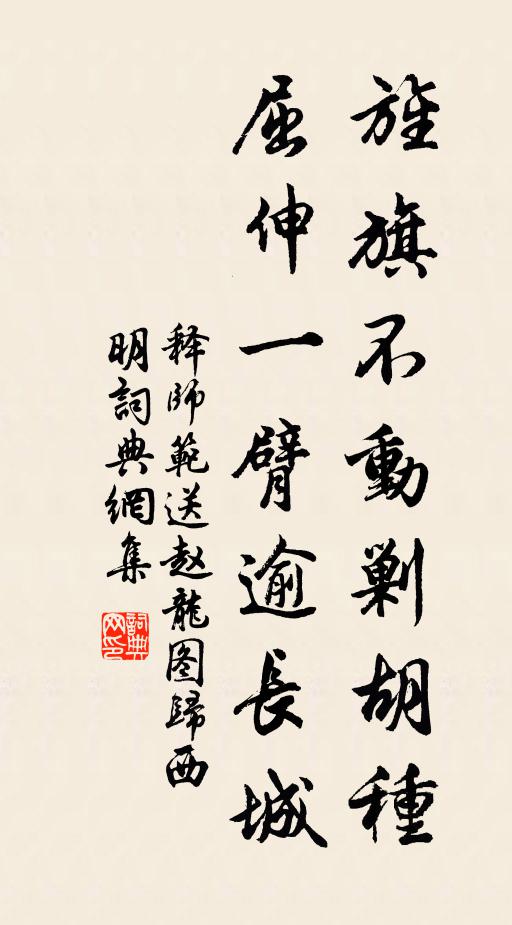 旌旗不動剿胡種
屈伸一臂逾長城
释師範送赵龍图歸西
明詞典網集
詞典网印